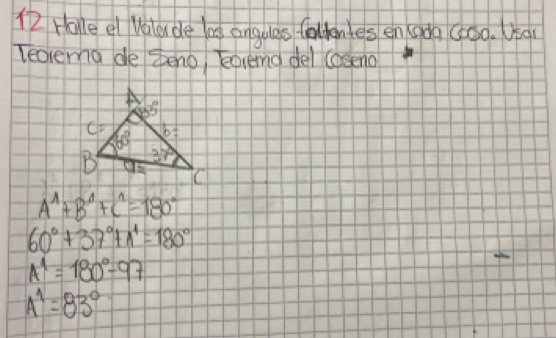 12 Halle el Valor de los angulos faltantes en cada caso. Usar
Teorema de Seno, Teorema del Coseno
A 83°
c= 60° b=
B a= 37° C
A^+B^+C^=180°
60°+37°+A^=180°
A^=180°-97
A^=83°